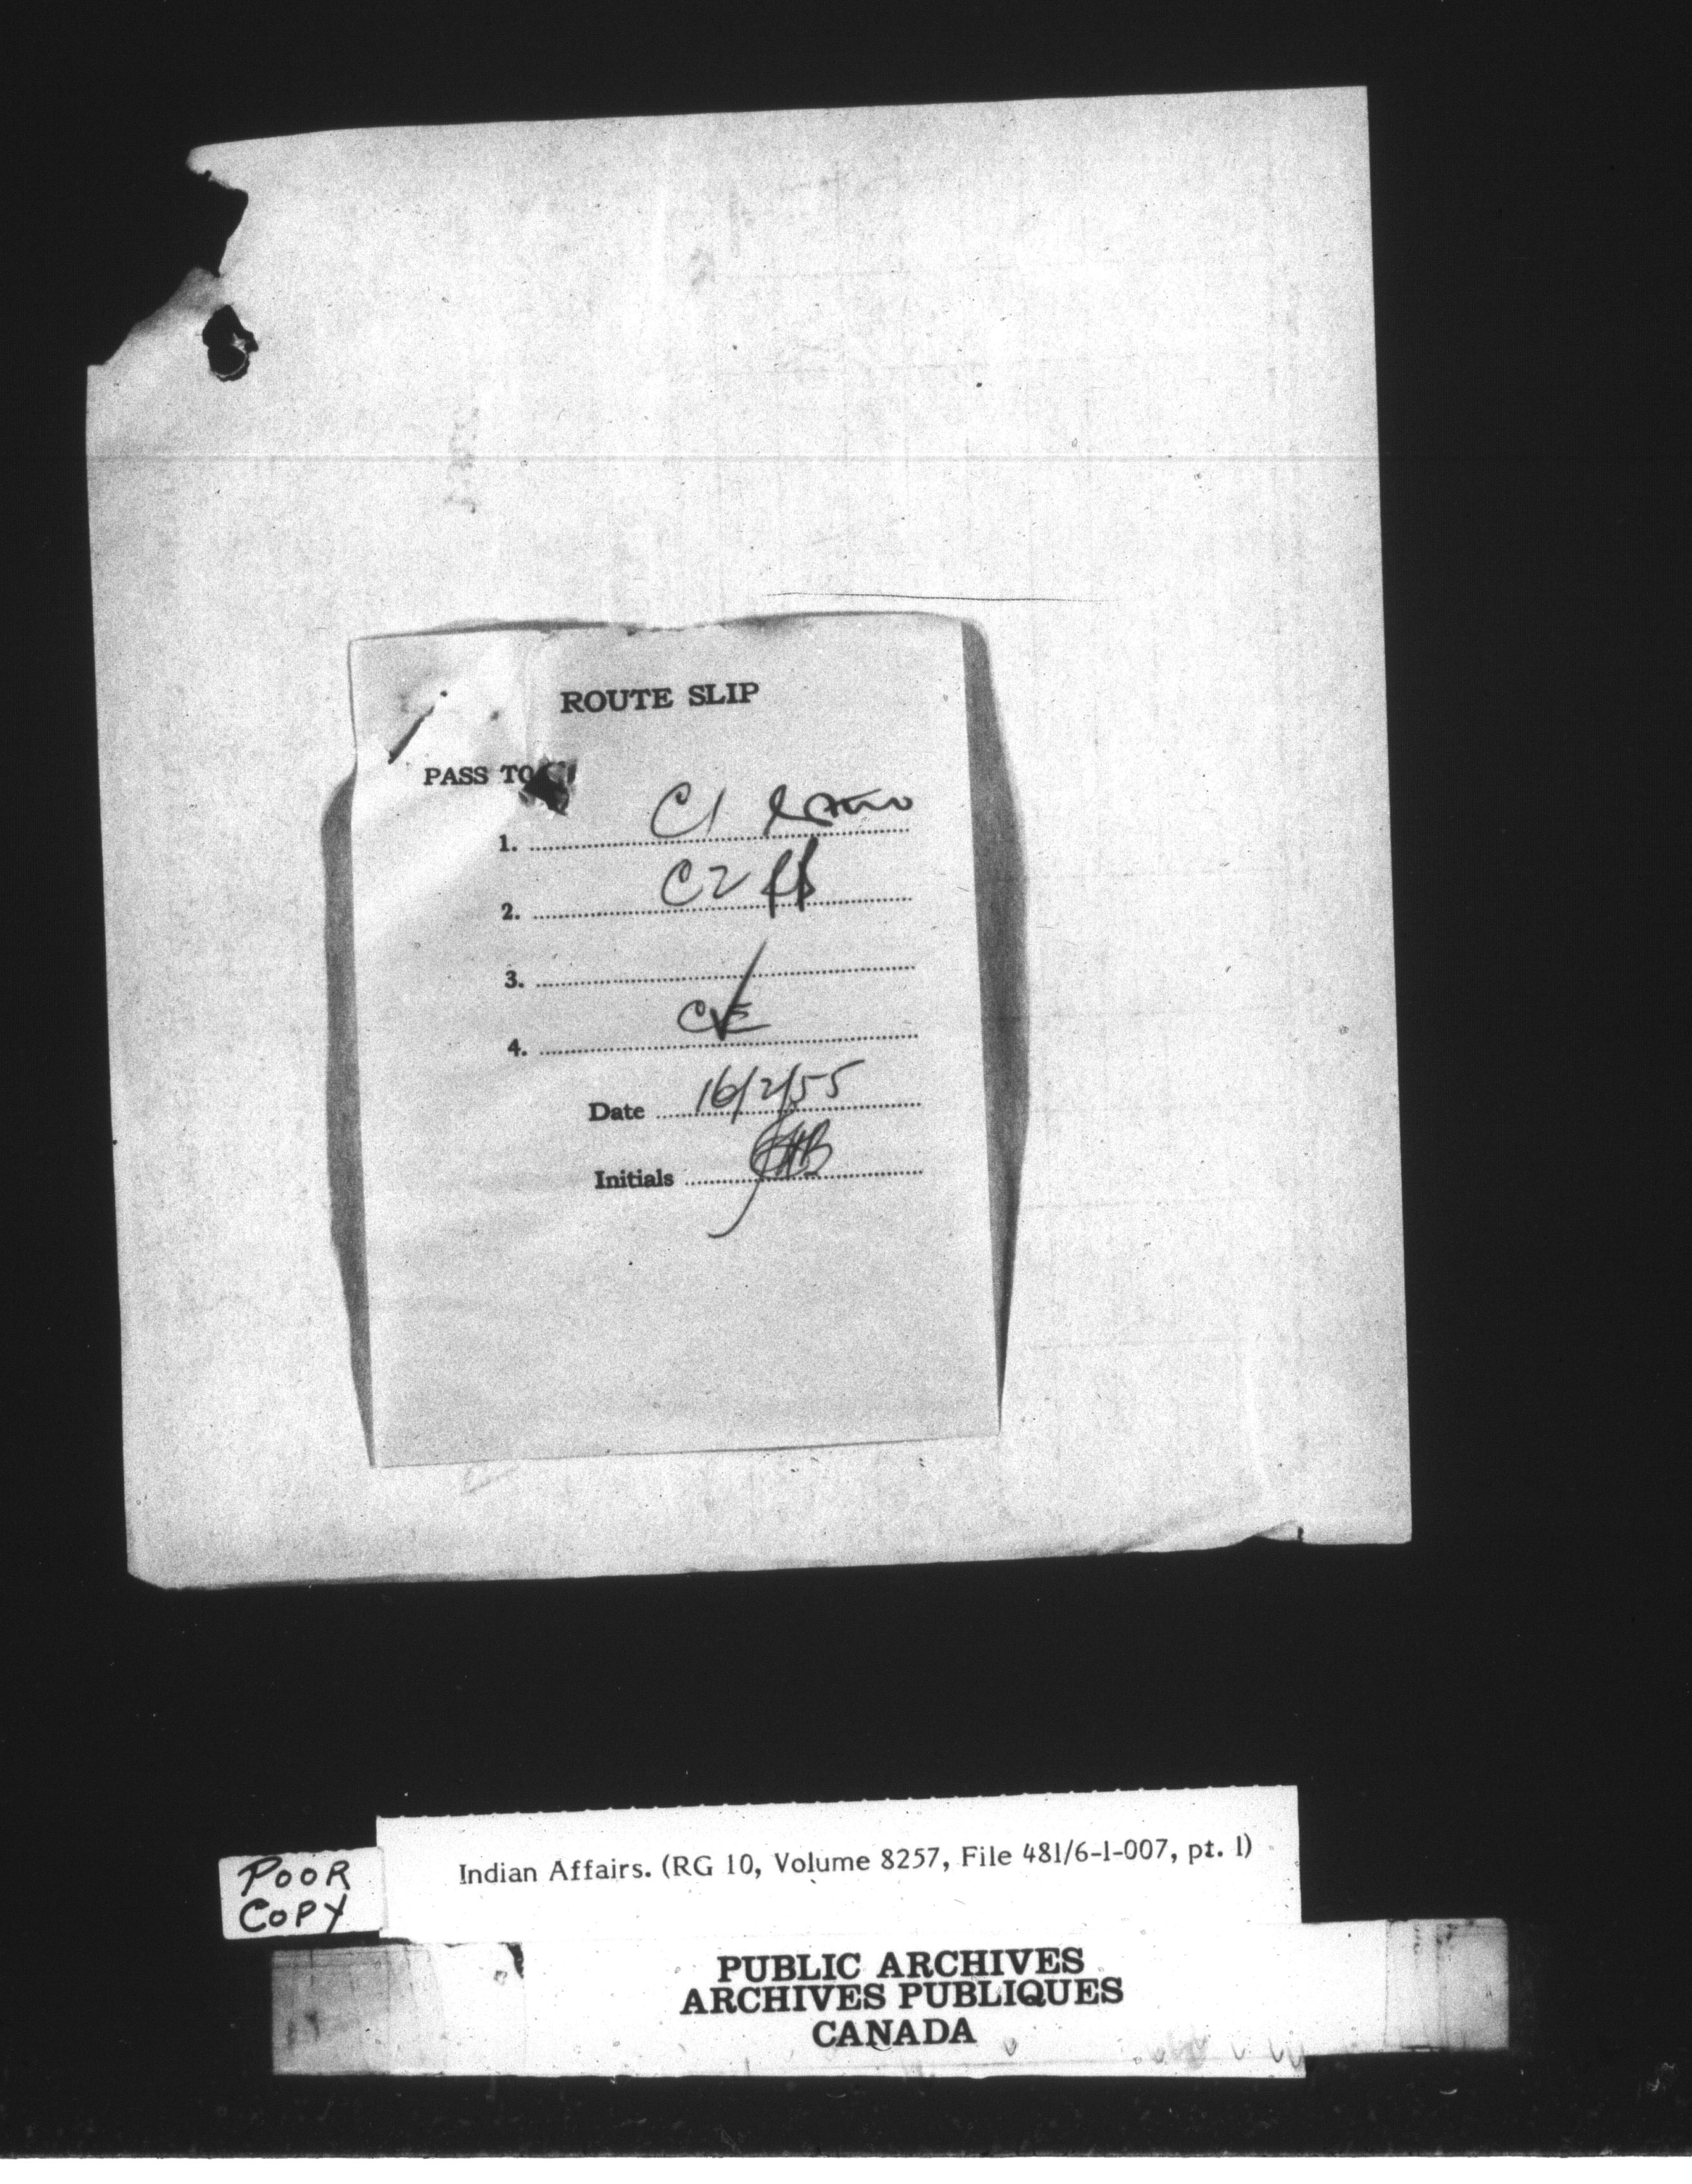 ROUTE SLIP
PASS TO
1. C1
2. C2
3.
4. CE
Date 16/2/55
Initials
POOR
COPY
Indian Affairs. (RG 10, Volume 8257, File 481/6-1-007, pt. 1)
PUBLIC ARCHIVES
ARCHIVES PUBLIQUES
CANADA